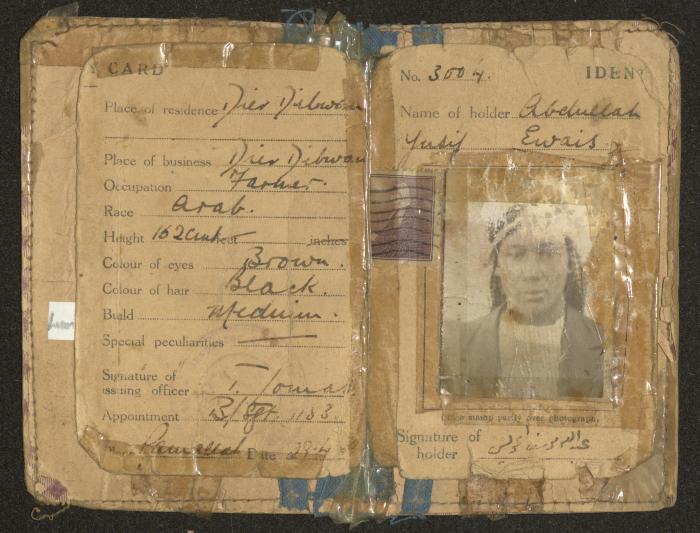 Y CARD
Place of residence Dier Dibwan
Place of business Dier Dibwan
Occupation Farmer.
Race Arab.
Height 162 feet inches
Colour of eyes Brown.
Colour of hair Black.
Build Medium.
Special peculiarities —
Signature of
issuing officer T.
Appointment B/Sgt. 1183.
Place Ramallah Date
No. 3004. IDEN
Name of holder Abdullah
Yusif Ewais
stamp partly over photograph.
Signature of
holder عبدالله يوسف